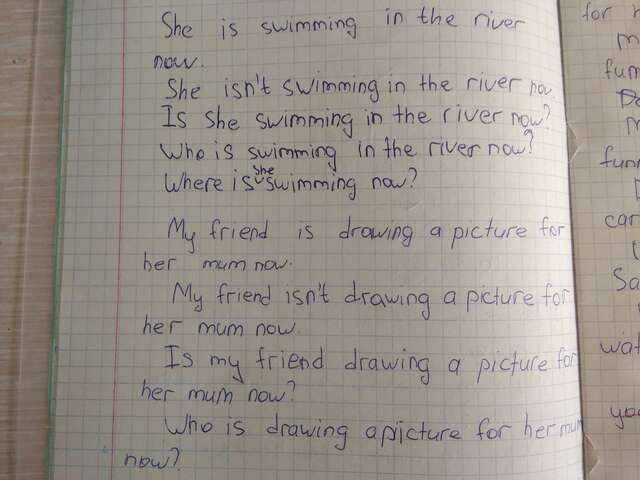 She is swimming in the river
now.
She isn't swimming in the river now
Is she swimming in the river now?
Who is swimming in the river now?
Where is she swimming now?
My friend is drawing a picture for
her mum now.
My friend isn't drawing a picture for
her mum now.
Is my friend drawing a picture for
her mum now?
Who is drawing a picture for her mum
now?
for